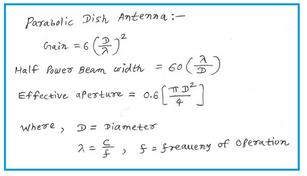 Parabolic Dish Antenna :-
Gain = 6 (D/λ)²
Half Power Beam width = 60 (λ/D)
Effective aperture = 0.6 [πD²/4]
Where, D = Diameter
λ = c/f , f = freaueny of Operation